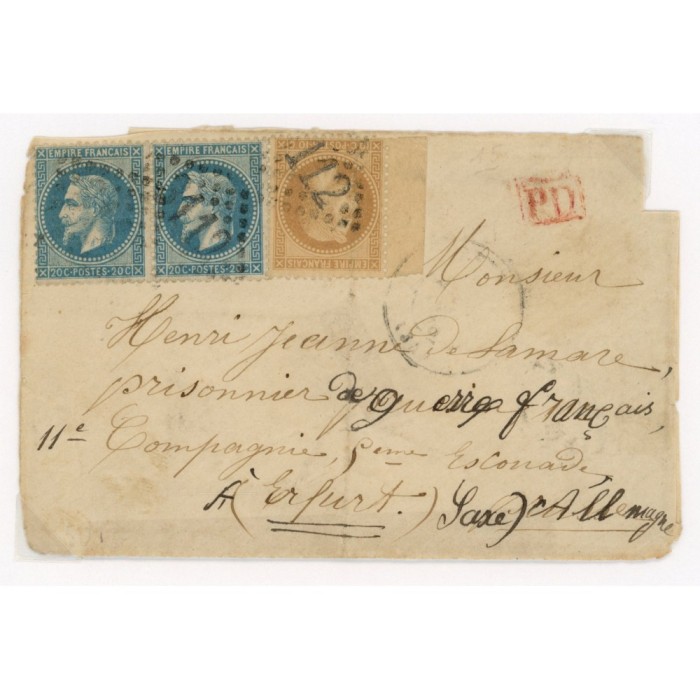 EMPIRE FRANÇAIS EMPIRE FRANÇAIS
20C·POSTES·20C 20C·POSTES·20
112
112
EMPIRE FRANÇAIS
PD
Monsieur
Henri Jeanne de Lamare,
prisonnier de guerre français,
11e Compagnie, 5eme Escouade
A (Erfurt.) Saxe) Allemagne